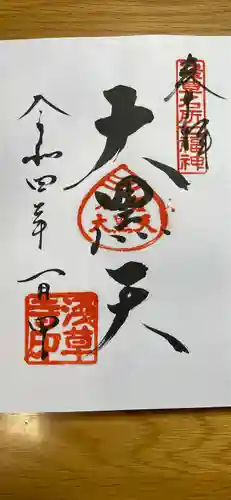 奉拝
浅草名所七福神
大黒天
大黒天
令和四年
一月
浅草寺印